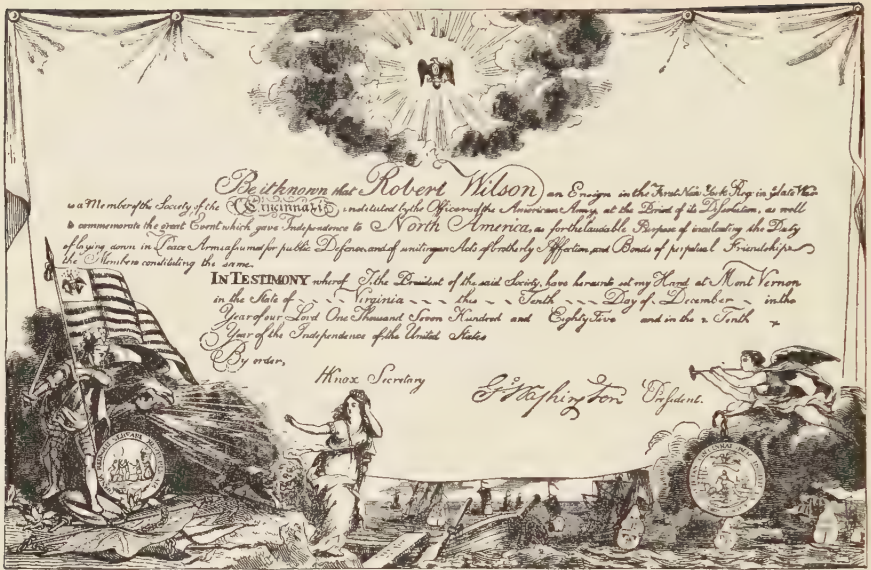 Be it known that Robert Wilson an Ensign in the First New York Reg: in ye late War
is a Member of the Society of the Cincinnati; instituted by the Officers of the American Army, at the Period of its Dissolution, as well
to commemorate the great Event which gave Independence to North America, as for the laudable Purpose of inculcating the Duty
of laying down in Peace Arms assumed for public Defence, and of uniting in Acts of brotherly Affection, and Bonds of perpetual Friendship
the Members constituting the same.
IN TESTIMONY whereof I, the President of the said Society, have hereunto set my Hand at Mont Vernon
in the State of Virginia this Tenth Day of December in the
Year of our Lord One Thousand Seven Hundred and Eighty Five and in the Tenth
Year of the Independence of the United States
By order,
HKnox Secretary
G. Washington President.